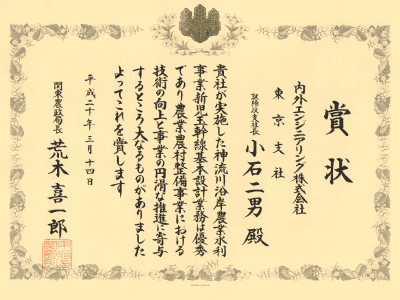 賞状
内外エンジニアリング株式会社
東京支社
取締役支社長 小石二男 殿
貴社が実施した神流川沿岸農業水利
事業新旧児玉幹線基本設計業務は優秀
であり農業農村整備事業における
技術の向上と事業の円滑な推進に寄与
するところ大なるものがありました
よってこれを賞します
平成二十年三月十四日
関東農政局長 荒木喜一郎